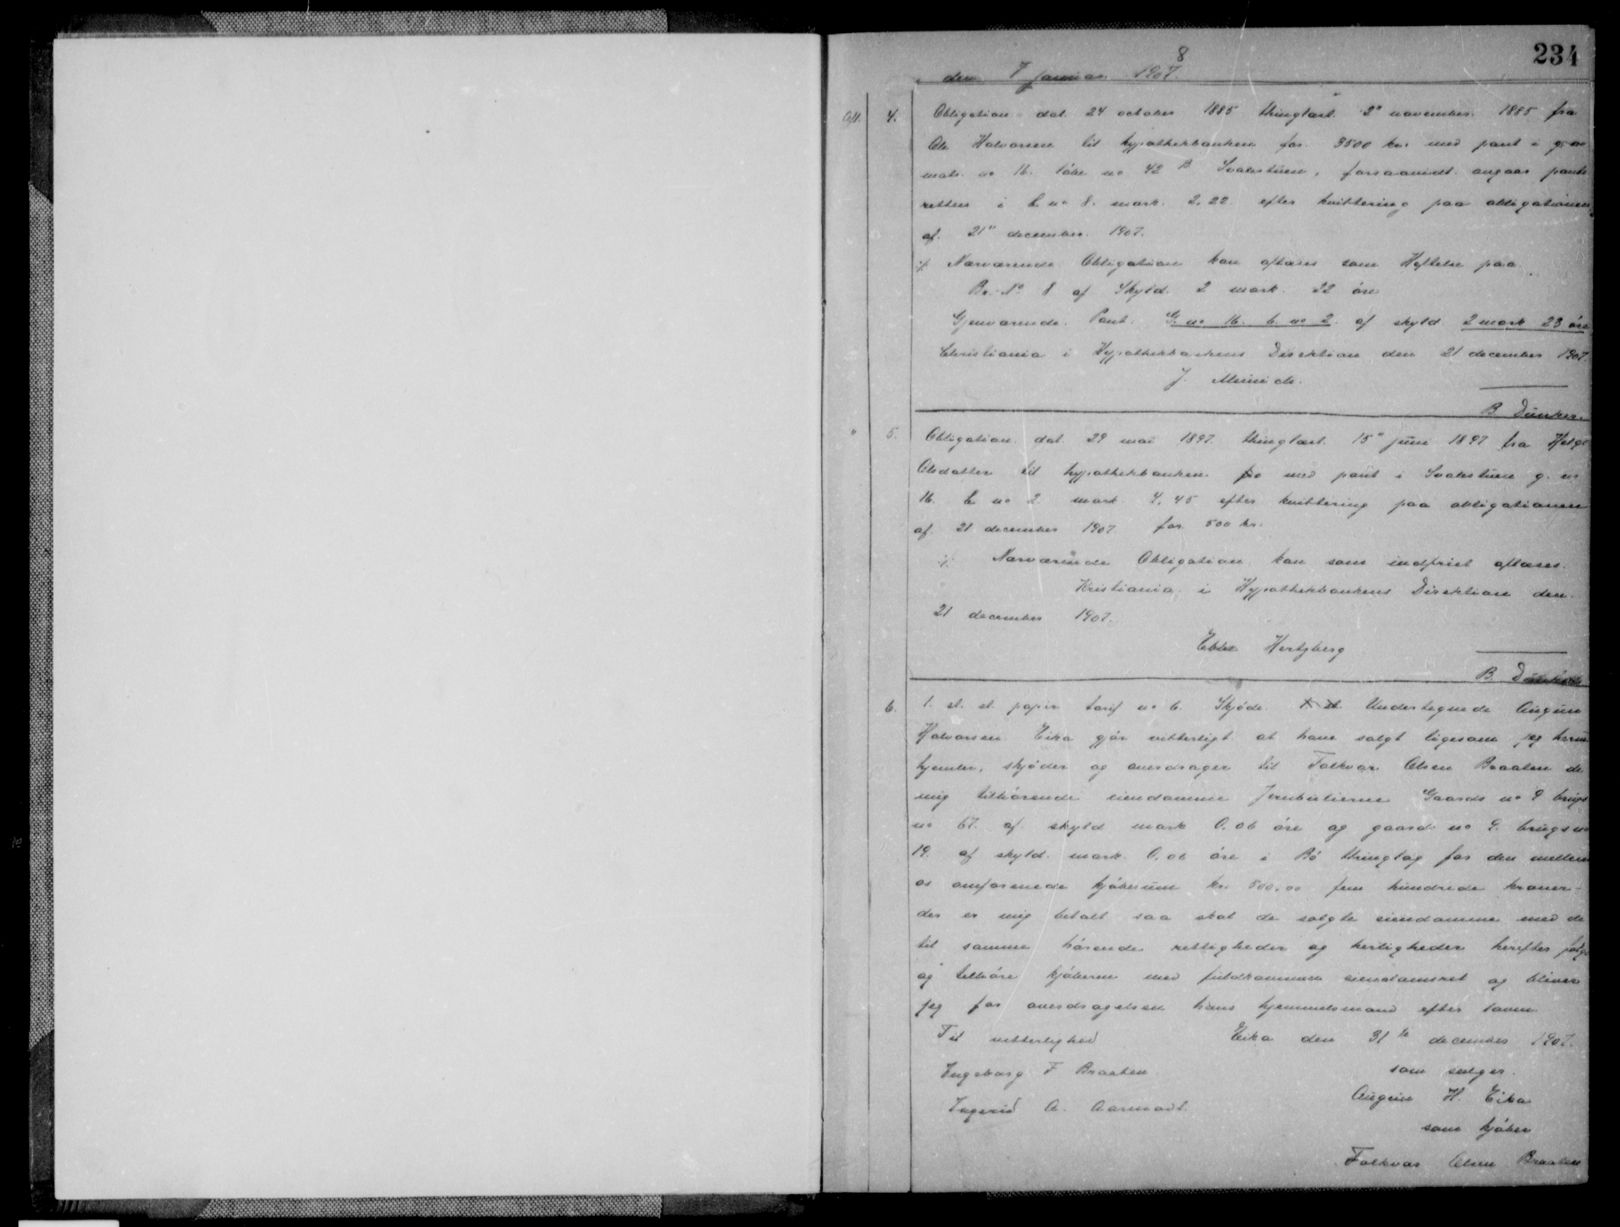 234
8
den 7 januar 1907.
Afl. 4. Obligation dat. 24 october 1885 thinglæst 2" november 1885 fra
Ole Halvorsen til hypothekbanken for 3500 kr. med pant i g. no
matr. no 16. løbe no 42 B Svalestuen, forsaavidt angaar pante
retten i b. no 8. mark. 2,22 efter kvittering paa obligationen
af 21" december 1907.
% Nærværende Obligation kan aflæses som Heftelse paa
Br. No 8 af Skyld 2 mark 22 øre
Gjenværende Pant. G. no 16. b. no 2. af skyld 2 mark 23 øre
Christiania i Hypothekbankens Direktion den 21 december 1907.
J.
B Dunker.
" 5. Obligation dat. 29 mai 1897 thinglæst 15" juni 1897 fra Helge
Olsdatter til hypothekbanken med pant i Svalestuen g. no
16. b. no 2 mark 4,45 efter kvittering paa obligationen
af 21 december 1907 for 500 kr.
% Nærværende Obligation kan som indfriet aflæses.
Kristiania i Hypothekbankens Direktion den
21 december 1907.
Ebbe Hertzberg
B. Dunker
6. 1. st. st. papir tarif no 6. Skjøde. Undertegnede Aagun
Halvorsen Eika gjør vitterligt at have solgt ligesom jeg herved
hjemler, skjøder og overdrager til Folkvar Olsen Braaten de
mig tilhørende eiendomme Gaards no 9 brugs
no 67. af skyld mark 0.06 øre og gaards no 9. brugs no
19. af skyld. mark 0,06 øre i Bø thinglag for den mellem
os omforenede kjøbesum kr. 500,00 fem hundrede kroner -
der er mig betalt saa skal de solgte eiendomme med de
til samme hørende rettigheder og herligheder herefter følge
og tilhøre kjøberen med fuldkommen eiendomsret og bliver
jeg for overdragelsen hans hjemmelsmand efter loven
Til vitterlighed Eika den 31te december 1907.
Ingeborg F Braaten som sælger.
Ingerid A. Aagun H. Eika
som kjøber
Folkvar Olsen Braaten